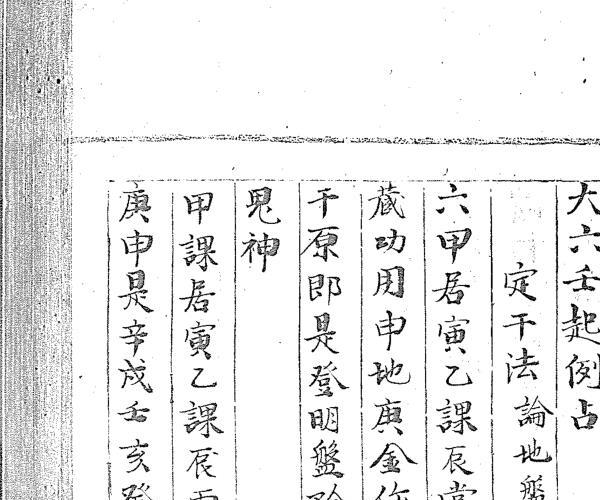 大六壬起例占
定干法論地盤
六甲居寅乙課辰當
藏功用申地庚金作
干原即是登明盤
鬼神
甲課居寅乙課辰
庚申是辛戌壬亥癸